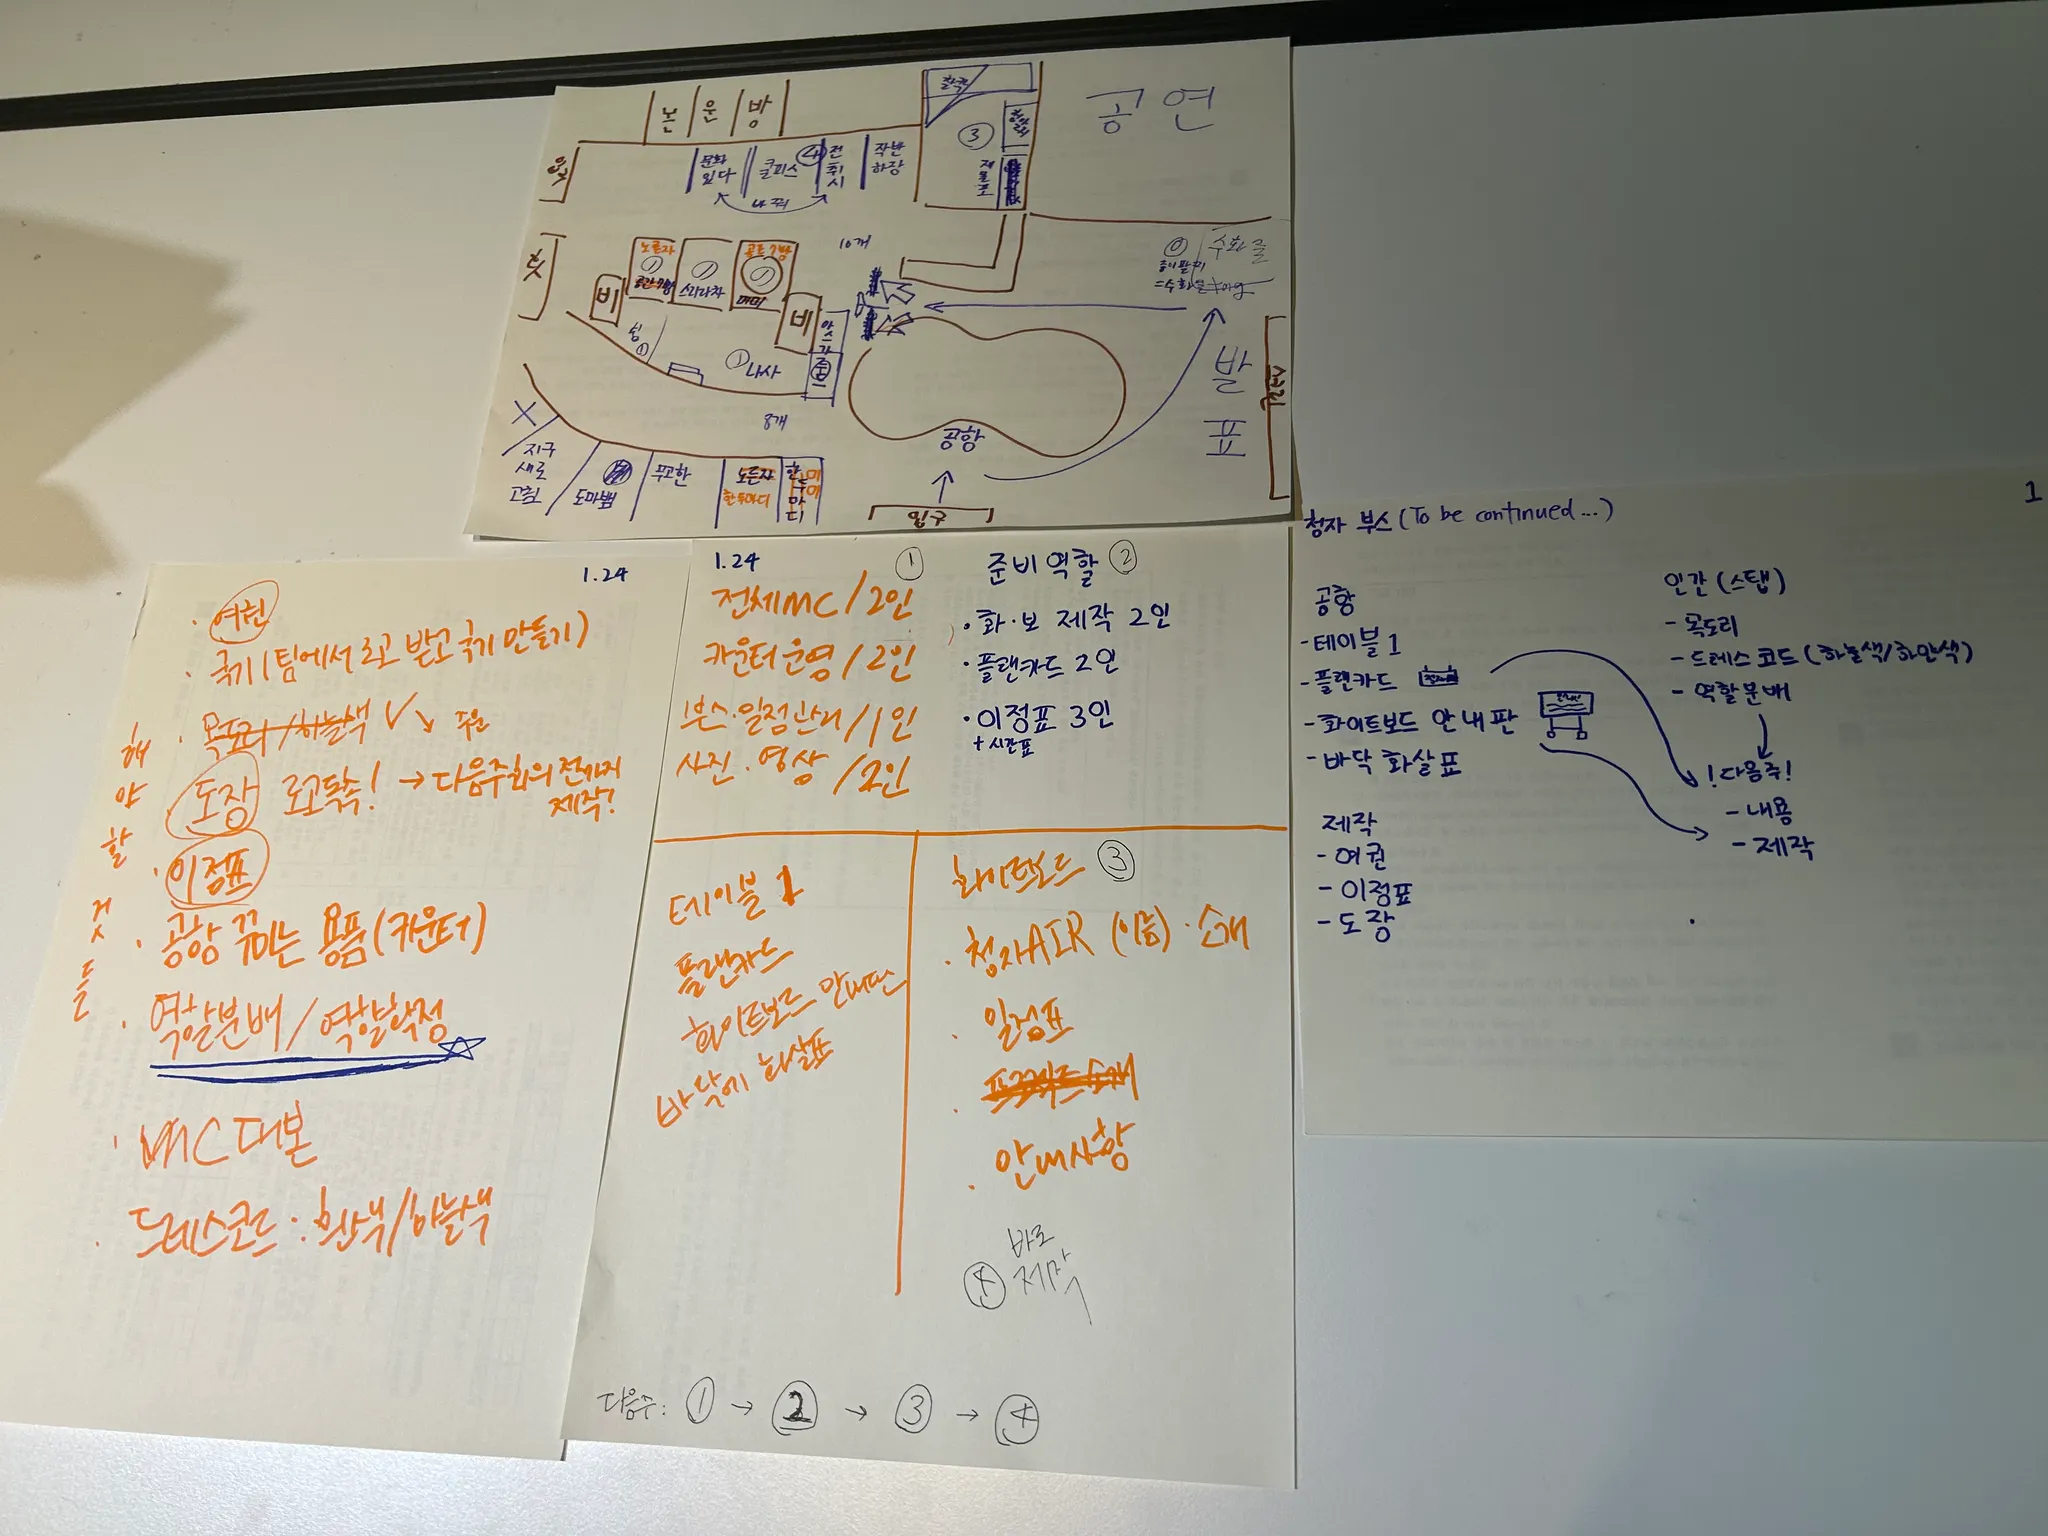 본 운 방
공 연
③
문화
있다
쿨피스
④
전
취
시
작반
하장
나 줘
10개
노른자
스리라차
비
비
① 나사
8개
X
지구
새로
고침
도마뱀
무고한
노른자
한두마디
한
두
마
디
공항
입구
수화
발
표
1.24
해
야
할
것
들
· 여권
· 국기 (팀에서 로고 받고 국기 만들기)
· 목도리/하늘색 ✓
도장 로고독촉! → 다음주회의 전까지
제작!
· 이정표
· 공항 꾸미는 용품 (카운터)
· 역할분배 / 역할확정
· MC 대본
· 드레스코드 : 흰색/하늘색
1.24
①
전체MC / 2인
카운터 운영 / 2인
부스·일정관리 / 1인
사진·영상 / 2인
준비 역할 ②
· 화·보 제작 2인
· 플랜카드 2인
· 이정표 3인
+ 시간표
테이블 1
플랜카드
화이트보드 안내판
바닥에 화살표
화이트보드 ③
· 청자AIR (이름) · 소개
· 일정표
· 프로젝트 소개
· 안내사항
바로
④ 제작
다음주: ① → ② → ③ → ④
1
청자 부스 (To be continued...)
공항
- 테이블 1
- 플랜카드
- 화이트보드 안내판
- 바닥 화살표
제작
- 여권
- 이정표
- 도장
인간 (스탭)
- 목도리
- 드레스 코드 (하늘색/하얀색)
- 역할분배
! 다음주!
- 내용
- 제작